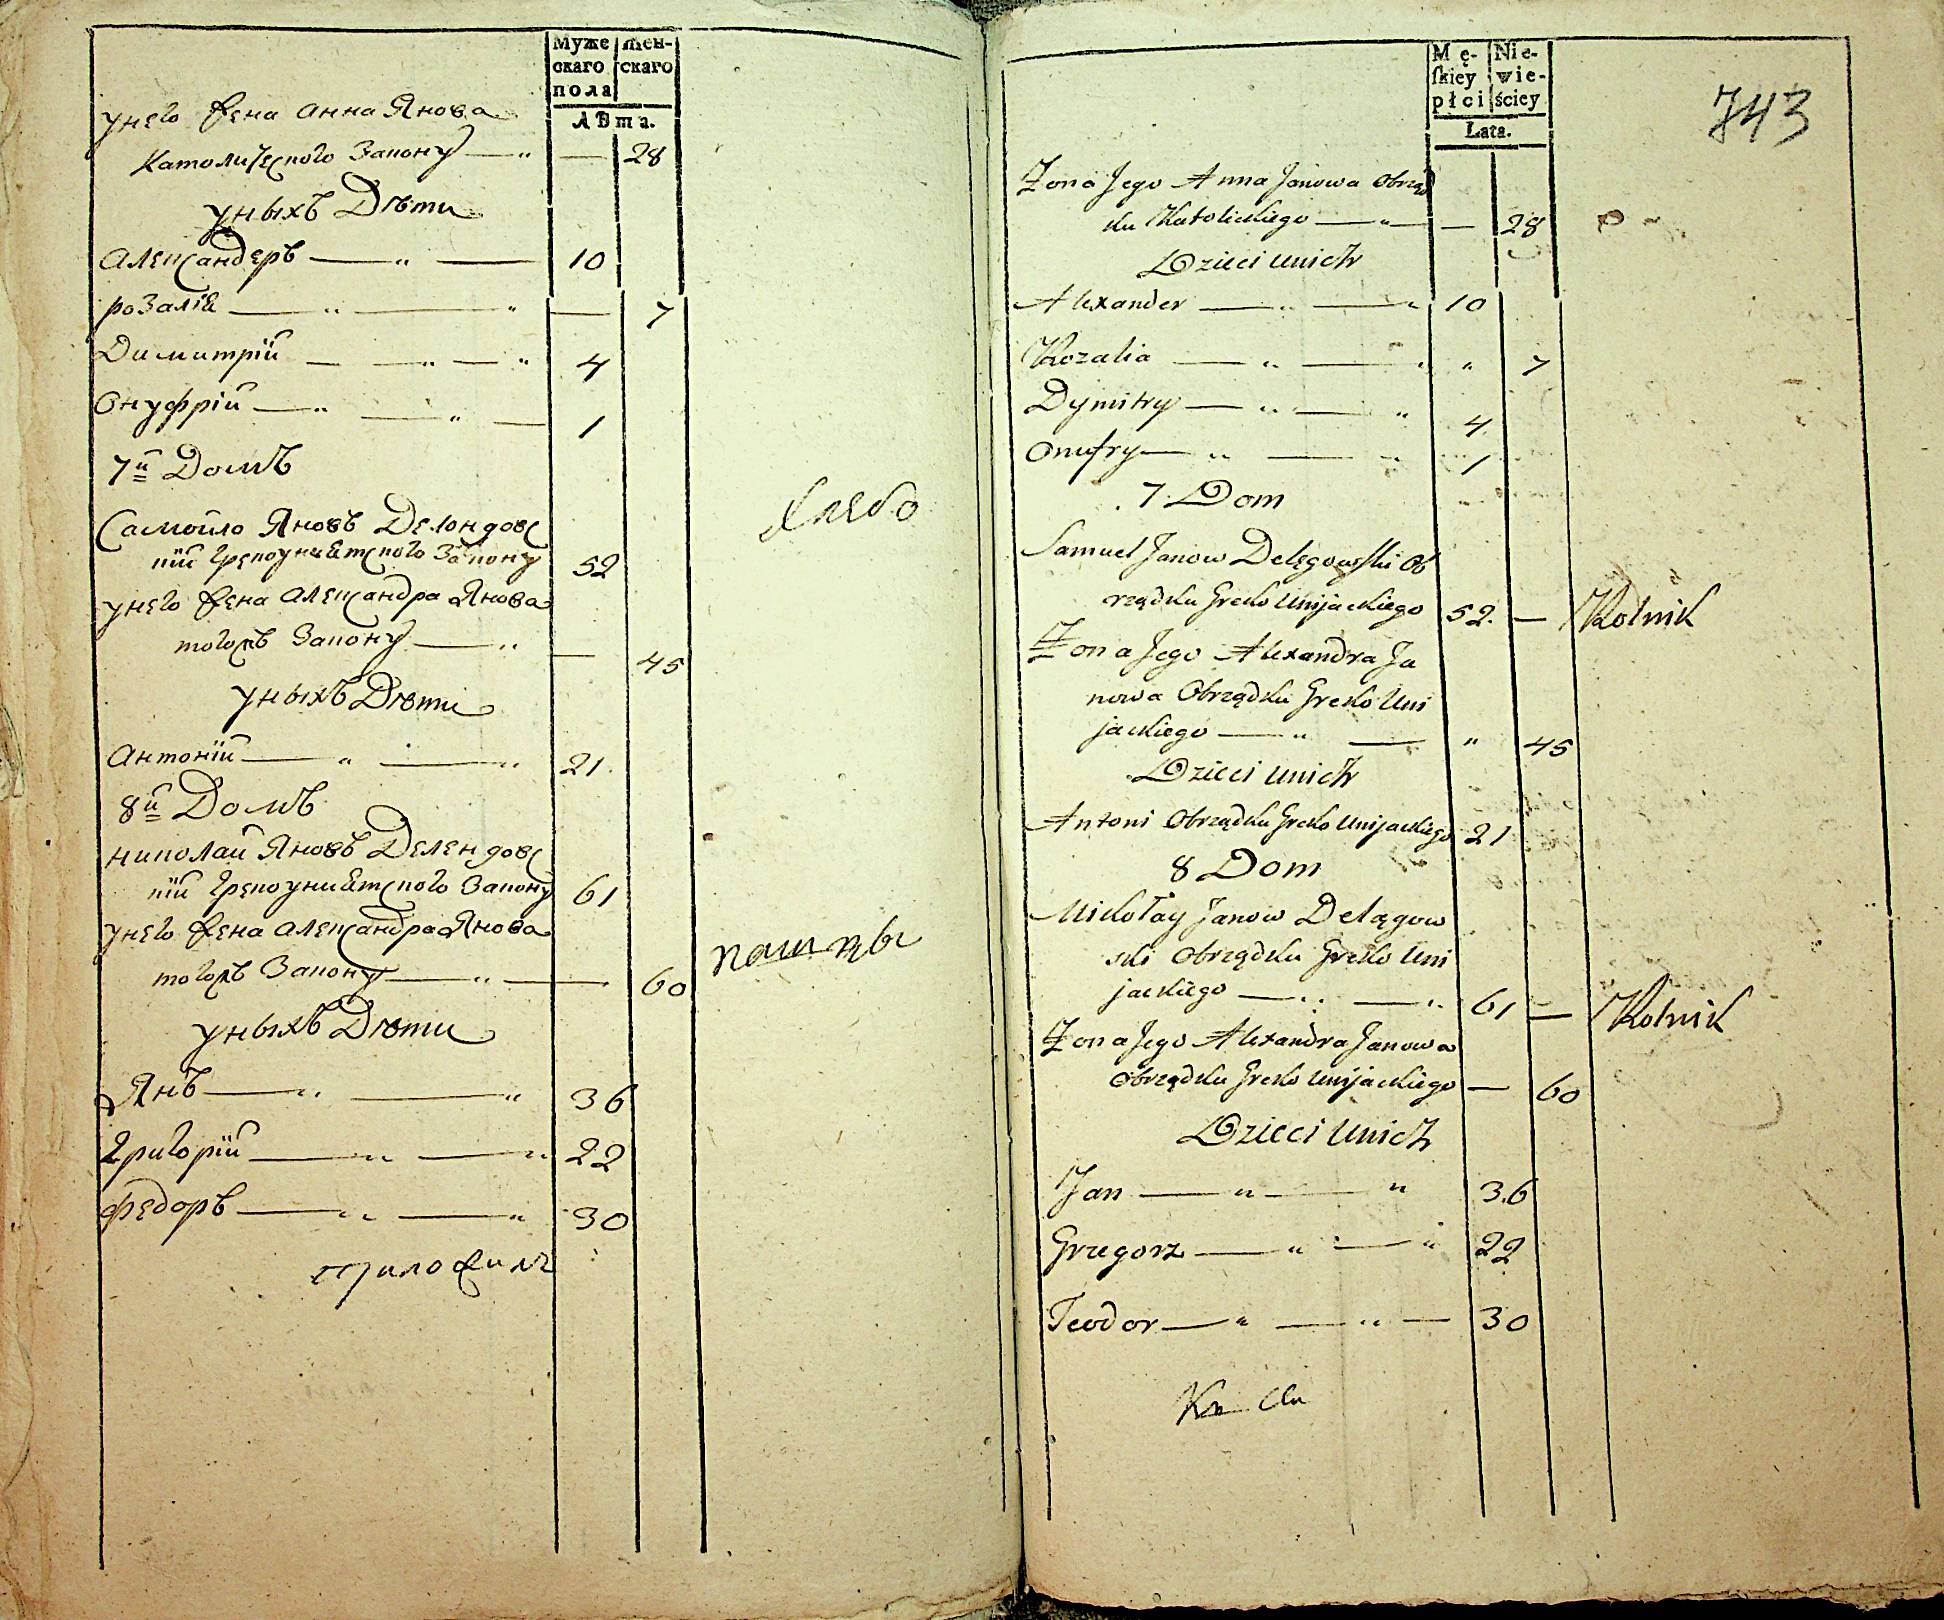 Муже
скаго
пола
жен-
скаго
лѣта.
унего жена анна Янова
католического Закону — „ — 28
уныхъ Дѣти
александеръ — „ — 10
розалія — „ — „ — 7
Димитрій — „ — „ 4
Онуфрій — „ — „ — 1
7й Домъ
Самойло Яновъ Делендовс
кій грекоуніятского Закону 52
унего жена александра Янова
тогожъ Закону — „ — 45
уныхъ Дѣти
антоній — „ — „ 21
8й Домъ
николай Яновъ Делендовс
кій грекоуніятского Закону 61
унего жена александра Янова
тогожъ Закону — „ — 60
уныхъ Дѣти
Янъ — „ — „ 36
григорій — „ — „ 22
федоръ — „ — „ 30
хлебо
пашцы
Mę-
ſkiey
płci
Nie-
wie-
ściey
Lata.
743
Żona Jego Anna Janowa Obrząd
ku Katolickiego — „ — — 28
Dzieci unich
Alexander — „ — „ 10
Rozalia — „ — „ „ 7
Dymitry — „ — „ 4
Onufry — „ — „ 1
7 Dom
Samuel Janow Delęgowski Ob
rządku Greko Unijackiego 52. — Rolnik
Żona Jego Alexandra Ja
nowa Obrządku Greko Uni
jackiego — „ — „ 45
Dzieci unich
Antoni Obrządku Greko Unijackiego 21
8 Dom
Mikołay Janow Delągow
ski Obrządku Greko Uni
jackiego — „ — „ 61 — Rolnik
Żona Jego Alexandra Janowa
Obrządku Greko Unijackiego — 60
Dzieci Unich
Jan — „ — „ 36
Grzegorz — „ — „ 22
Teodor — „ — „ — 30